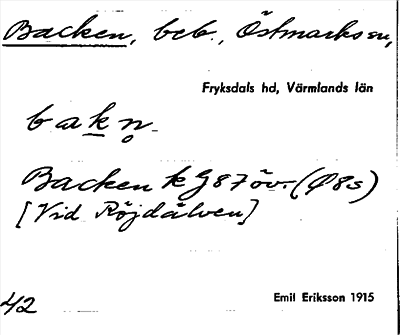 Backen, beb., Östmarks sn,
Fryksdals hd, Värmlands län
bakn̥.
Backen k G87öv. (Ø8s)
[Vid Röjdålven]
42
Emil Eriksson 1915